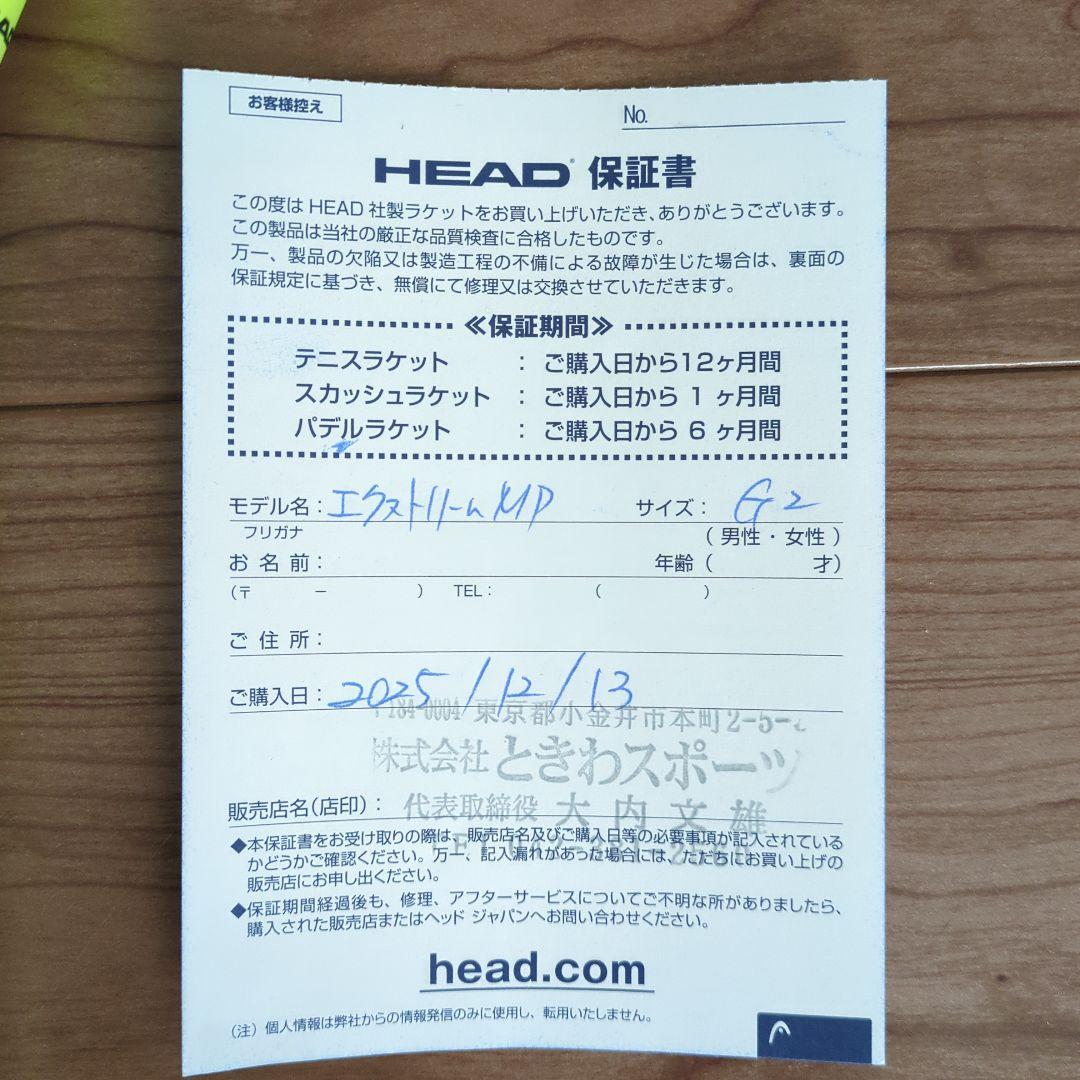 お客様控え
No.
HEAD 保証書
この度は HEAD 社製ラケットをお買い上げいただき、ありがとうございます。
この製品は当社の厳正な品質検査に合格したものです。
万一、製品の欠陥又は製造工程の不備による故障が生じた場合は、裏面の
保証規定に基づき、無償にて修理又は交換させていただきます。
≪保証期間≫
テニスラケット : ご購入日から12ヶ月間
スカッシュラケット : ご購入日から 1 ヶ月間
パデルラケット : ご購入日から 6 ヶ月間
モデル名: エクストリームMP サイズ: G2
フリガナ (男性・女性)
お名前: 年齢( 才)
(〒 − ) TEL: ( )
ご住所:
ご購入日: 2025/12/13
〒184-0004 東京都小金井市本町2-5-
株式会社 ときわスポーツ
販売店名(店印): 代表取締役 大内文雄
◆本保証書をお受け取りの際は、販売店名及びご購入日等の必要事項が記入されている
かどうかご確認ください。万一、記入漏れがあった場合には、ただちにお買い上げの
販売店にお申し出ください。
◆保証期間経過後も、修理、アフターサービスについてご不明な所がありましたら、
購入された販売店またはヘッド ジャパンへお問い合わせください。
head.com
(注) 個人情報は弊社からの情報発信のみに使用し、転用いたしません。